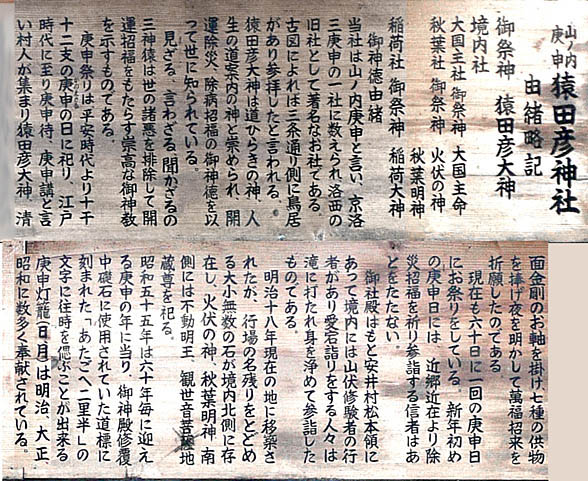 山ノ内
庚申
猿田彦神社
由緒略記
御祭神 猿田彦大神
境内社
大国主社 御祭神 大国主命
秋葉社 御祭神 火伏の神
秋葉明神
稲荷社 御祭神 稲荷大神
御神徳由緒
当社は山ノ内庚申と言い、京洛
三庚申の一社に数えられ洛西の
旧社として著名なお社である
古図によれば三条通り側に鳥居
があり参拝したと言う。
猿田彦大神は道ひらきの神、人
生の道案内の神と崇められ、開
運除災、除病招福の御神徳を以
って世に知られている。
見ざる、言わざる、聞かざるの
三神猿は世の諸悪を排除して開
運招福をもたらす崇高な御神教
を示すものである。
庚申祭りは平安時代より十干
十二支の庚申の日に祀り、江戸
時代に至り庚申待、庚申講と言
い村人が集まり猿田彦大神、清
面金剛のお軸を掛け七種の供物
を捧げ夜を明かして萬福招来を
祈願したのである。
現在も六十日に一回の庚申日
にお祭りをしている。新年初め
の庚申日には、近郷近在より除
災招福を祈り参詣する信者はあ
とをたたない。
御社殿はもと安井村松本領に
あって境内には山伏修験者の行
者があり愛宕詣りをする人々は
滝に打たれ身を浄めて参詣した
ものである。
明治十八年現在の地に移築さ
れたが、行場の名残りをとどめ
る大小無数の石が境内北側に存
在し、火伏の神、秋葉明神、南
側には不動明王、観世音菩薩、地
蔵尊を祀る。
昭和五十五年は六十年毎に迎え
る庚申の年に当り、御神殿修覆
中礎石に使用されていた道標に
刻まれた「あたごへ二里半」の
文字に往時を偲ぶことが出来る
庚申灯籠(日、月)は明治、大正、
昭和に数多く奉献されている。